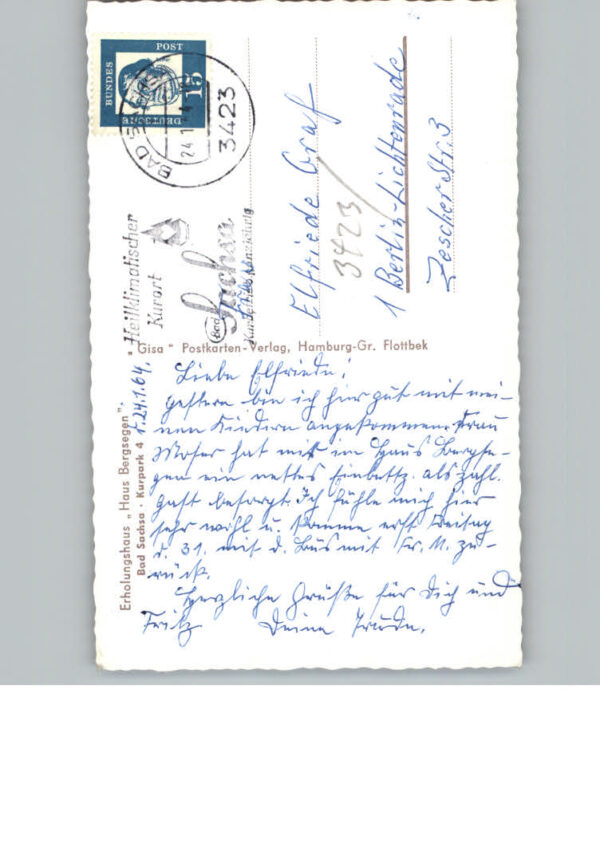 DEUTSCHE
BUNDES
POST
15
BAD SACHSA
24.1.64
3423
Heilklimatischer
Kurort
Bad Sachsa
Elfriede Graf
3423
1 Berlin-Lichtenrade
Zescher Str. 3
"Gisa" Postkarten-Verlag, Hamburg-Gr. Flottbek
Erholungshaus „Haus Bergsegen"
Bad Sachsa · Kurpark 4
d. 24.1.64.
Liebe Elfriede!
gestern bin ich hier gut mit mei-
nen Kindern angekommen. Frau
Moser hat mir im Haus Bergse-
gen ein nettes Einbettz. als zahl.
Gast besorgt. Ich fühle mich hier
sehr wohl u. komme erst Freitag
d. 31. mit d. Bus mit Fr. M. zu-
rück.
Herzliche Grüße für Dich und
Fritz Deine Trude.